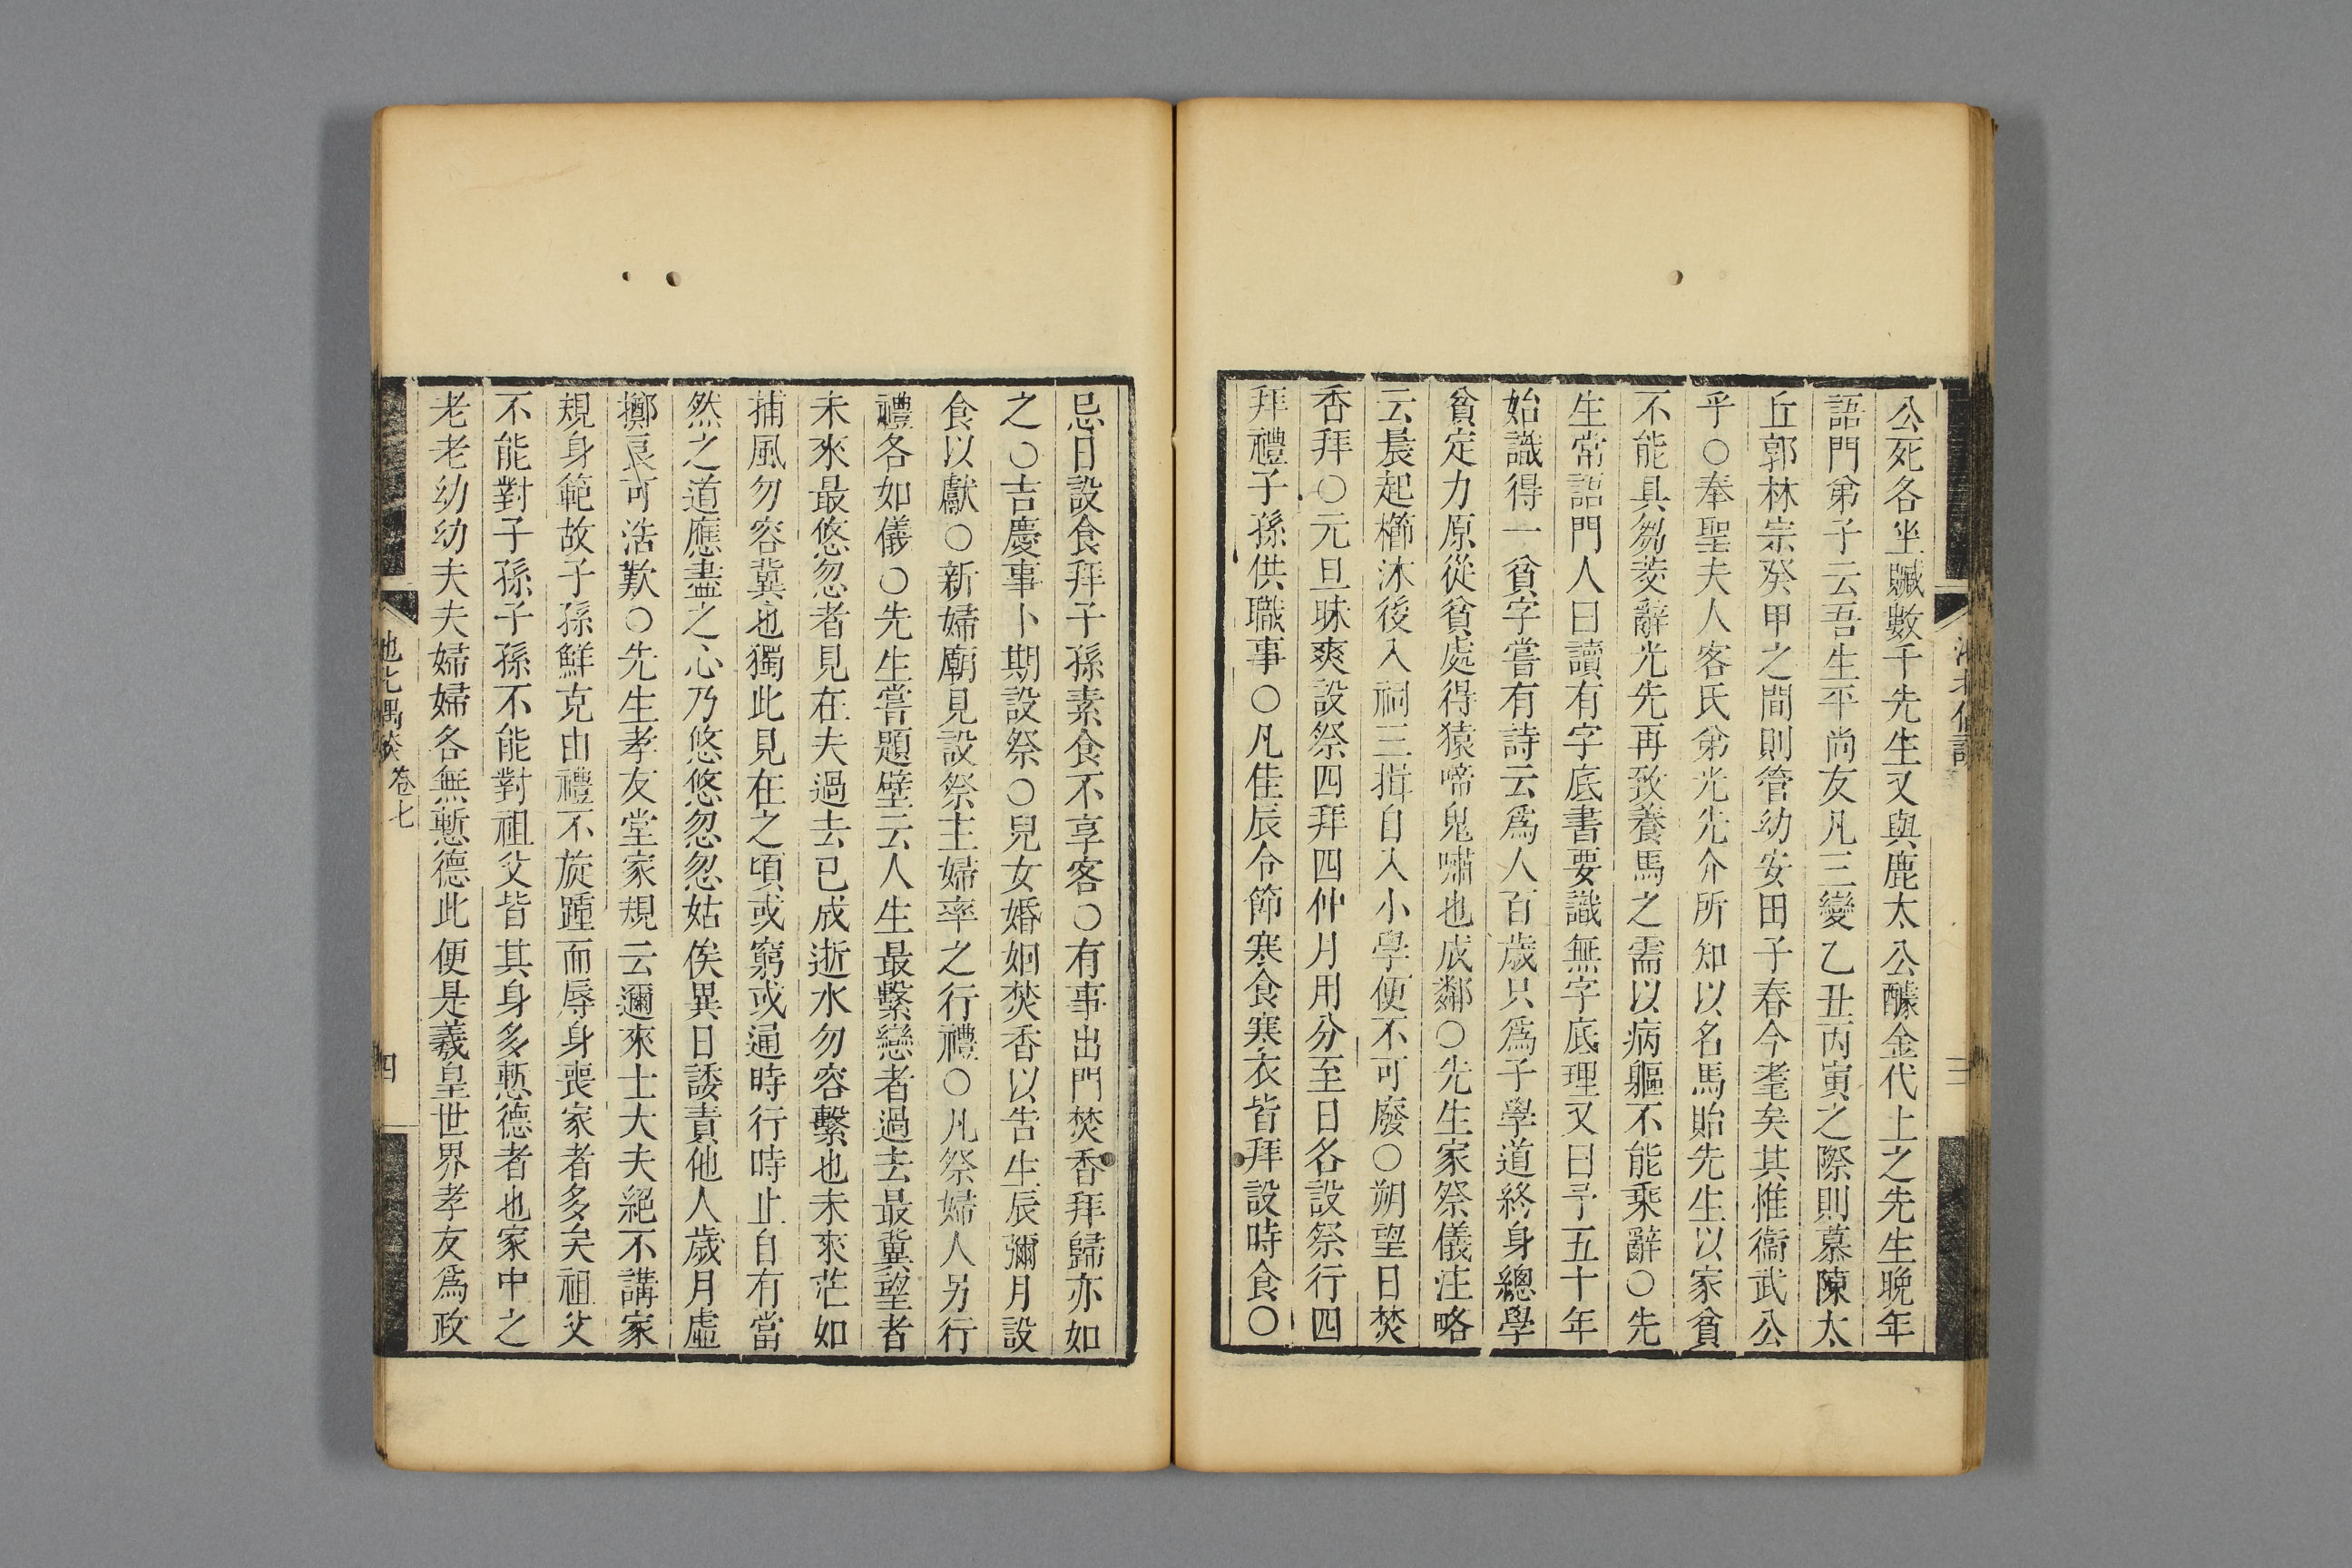 公死各坐贓數千先生又與鹿太公醵金代上之先生晚年
語門弟子云吾生平尚友凡三變乙丑丙寅之際則慕陳太
丘郭林宗癸甲之間則管幼安田子春今耄矣其惟衞武公
乎○奉聖夫人客氏弟光先介所知以名馬貽先生以家貧
不能具芻茭辭光先再致養馬之需以病軀不能乘辭○先
生常語門人曰讀有字底書要識無字底理又曰予五十年
始識得一貧字嘗有詩云爲人百歲只爲子學道終身總學
貧定力原從貧處得猿啼鬼嘯也成鄰○先生家祭儀注略
云晨起櫛沐後入祠三揖自入小學便不可廢○朔望日焚
香拜○元旦昧爽設祭四拜四仲月用分至日各設祭行四
拜禮子孫供職事○凡佳辰令節寒食寒衣皆拜設時食○
忌日設食拜子孫素食不享客○有事出門焚香拜歸亦如
之○吉慶事卜期設祭○兒女婚姻焚香以告生辰彌月設
食以獻○新婦廟見設祭主婦率之行禮○凡祭婦人另行
禮各如儀○先生嘗題壁云人生最繫戀者過去最冀望者
未來最悠忽者見在夫過去已成逝水勿容繫也未來茫如
捕風勿容冀也獨此見在之頃或窮或通時行時止自有當
然之道應盡之心乃悠悠忽忽姑俟異日諉責他人歲月虛
擲良可浩歎○先生孝友堂家規云邇來士大夫絕不講家
規身範故子孫鮮克由禮不旋踵而辱身喪家者多矣祖父
不能對子孫子孫不能對祖父皆其身多慙德者也家中之
老老幼幼夫夫婦婦各無慙德此便是羲皇世界孝友爲政
卷七
四